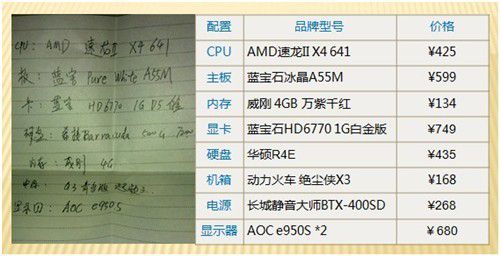 CPU: AMD 速龙II X4 641
板: 蓝宝 Pure White A55M
卡: 蓝宝 HD6770 1G D5
硬盘: Barracuda 500G
内存: 威刚 4G
显示四: AOC e950S
配置 品牌型号 价格
CPU AMD速龙II X4 641 ¥425
主板 蓝宝石冰晶A55M ¥599
内存 威刚 4GB 万紫千红 ¥134
显卡 蓝宝石HD6770 1G白金版 ¥749
硬盘 华硕R4E ¥435
机箱 动力火车 绝尘侠X3 ¥168
电源 长城静音大师BTX-400SD ¥268
显示器 AOC e950S *2 ¥680